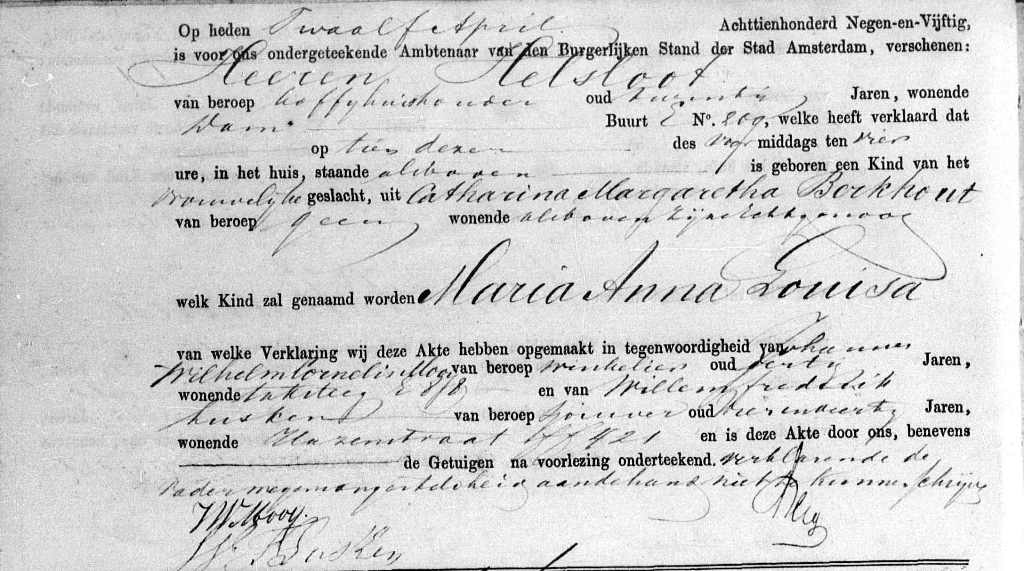 Op heden Twaalf April Achttienhonderd Negen-en-Vijftig,
is voor ons ondergeteekende Ambtenaar van den Burgerlijken Stand der Stad Amsterdam, verschenen:
Heeren Helsloot
van beroep koffyhuishouder oud Twintig Jaren, wonende
Dam Buurt No. 209, welke heeft verklaard dat
op tien dezer des voormiddags ten vier
ure, in het huis, staande alsboven is geboren een Kind van het
Vrouwelyke geslacht, uit Catharina Margaretha Berkhout
van beroep geen wonende alsboven zijne Echtgenoot
welk Kind zal genaamd worden Maria Anna Louisa
van welke Verklaring wij deze Akte hebben opgemaakt in tegenwoordigheid van Johannes
Wilhelm Cornelis Mooy van beroep winkelier oud Jaren,
wonende en van Willem Fredrik
van beroep oud Jaren,
wonende Hazenstraat FF 421 en is deze Akte door ons, benevens
de Getuigen na voorlezing onderteekend. verklarende de
Vader wegens ongesteldheid aan de hand niet te kunnen schryven
W Mooy.